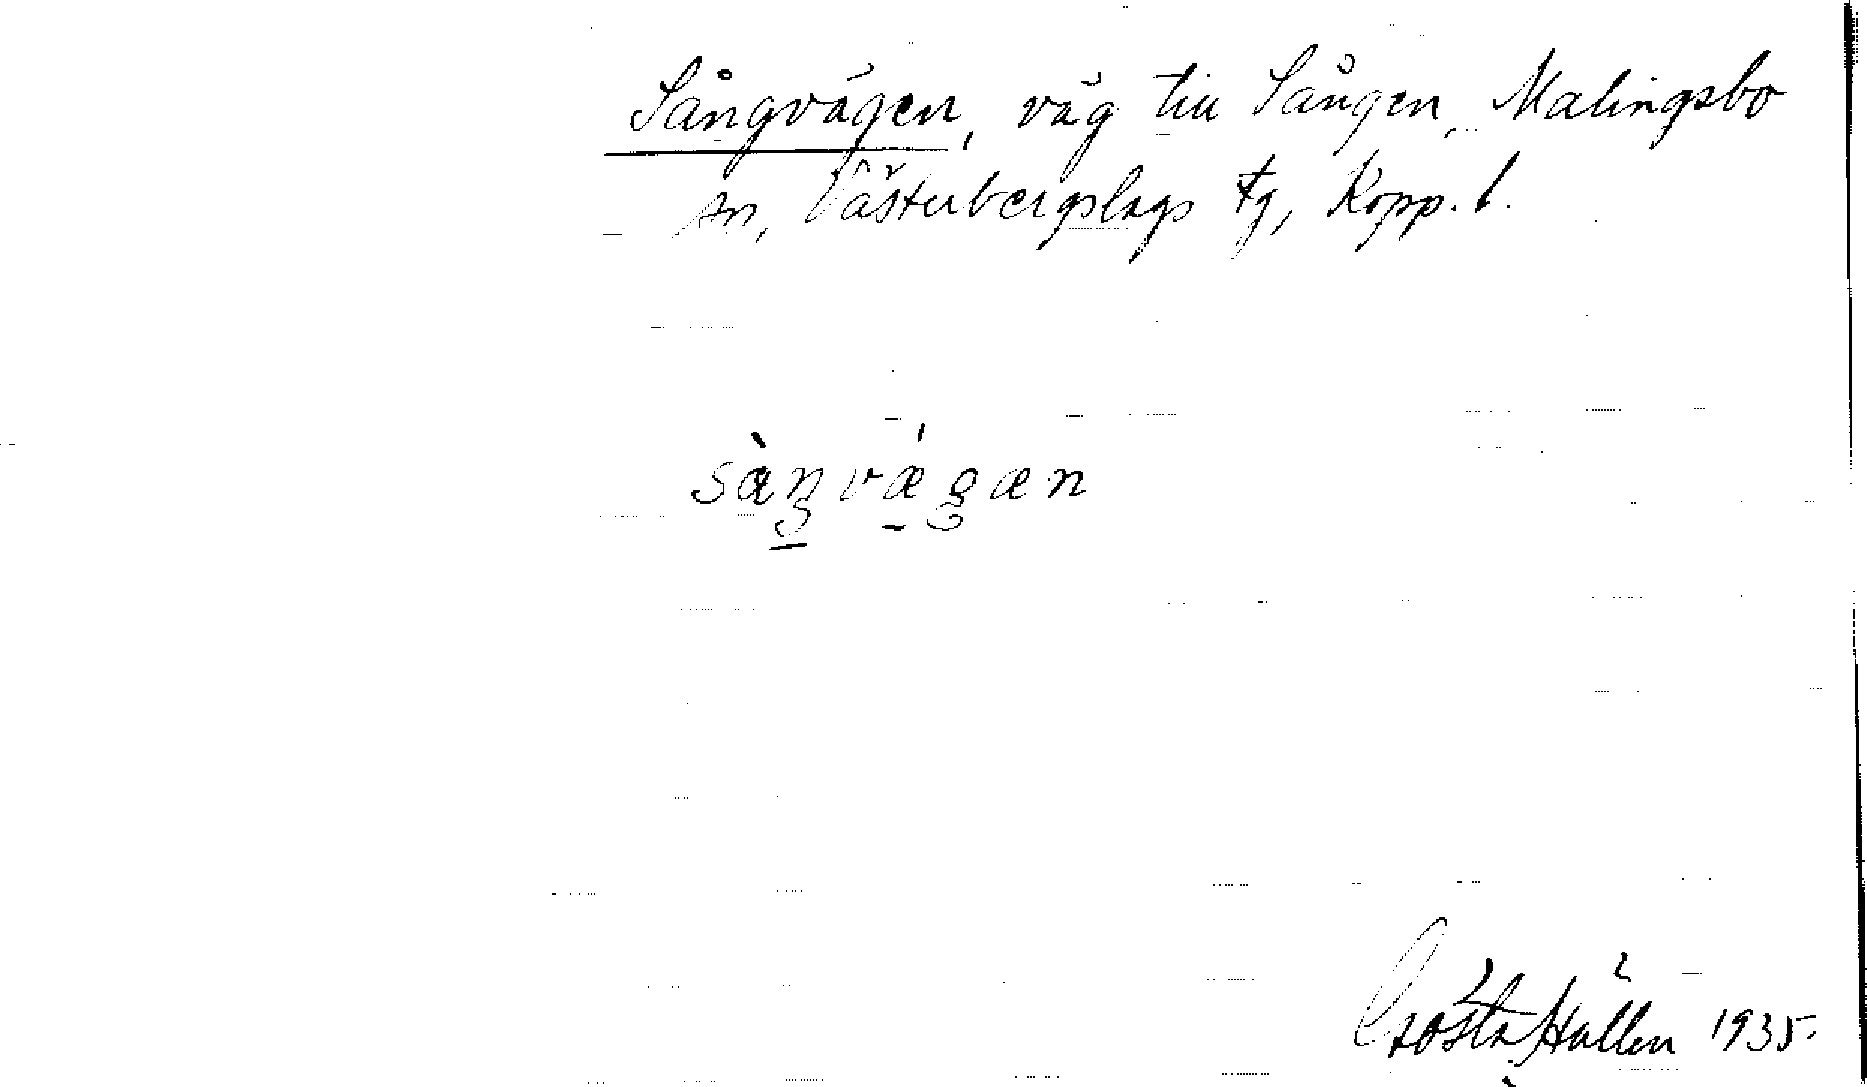 Sångvägen, väg till Sången, Malingsbo
sn, Västerbergslags tg, Kopp. l.
sàŋvǽgæn
Gösta Hållen 1935.